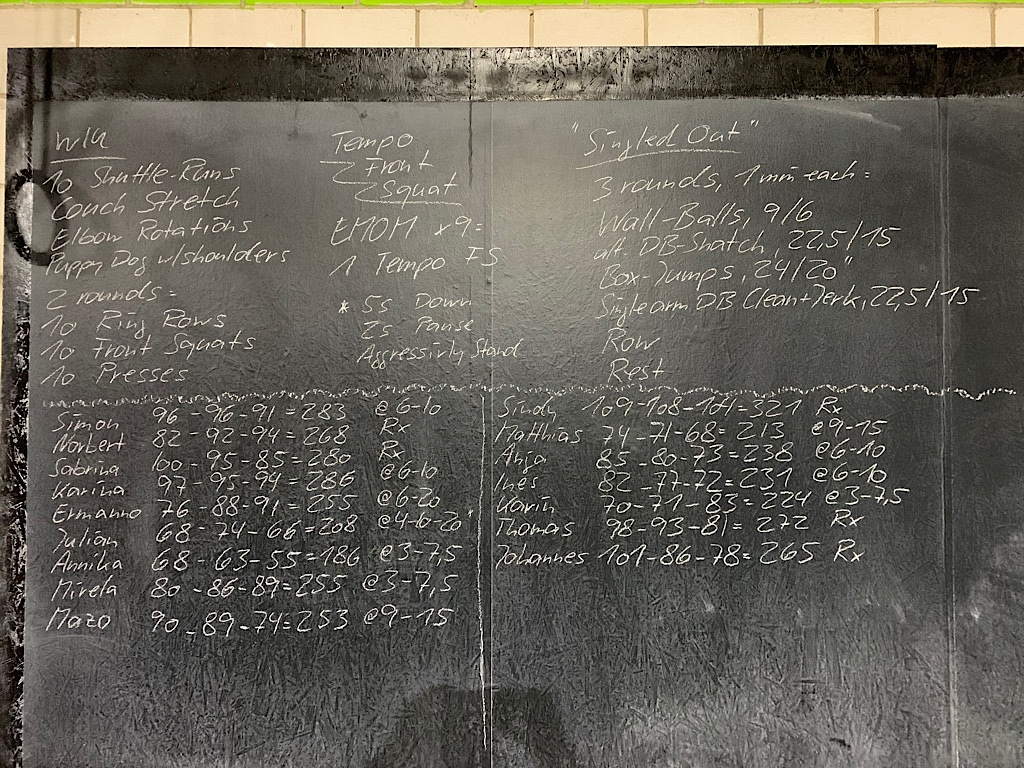 W/U
10 Shuttle-Runs
Couch Stretch
Elbow Rotations
Puppy Dog w/shoulders
2 rounds:
10 Ring Rows
10 Front Squats
10 Presses
Tempo
Front
Squat
EMOM x9:
1 Tempo FS
* 5s Down
2s Pause
Aggressivly Stand
"Singled Out"
3 rounds, 1 min each:
Wall-Balls, 9/6
alt. DB-Snatch, 22,5/15
Box-Jumps, 24/20"
Single arm DB Clean+Jerk, 22,5/15
Row
Rest
Simon 96-96-91=283 @6-10
Norbert 82-92-94=268 Rx
Sabrina 100-95-85=280 Rx
Karina 97-95-94=286 @6-10
Ermanno 76-88-91=255 @6-20
Julian 68-74-66=208 @4-10-20"
Annika 68-63-55=186 @3-7,5
Mirela 80-86-89=255 @3-7,5
Mazo 90-89-74=253 @9-15
Sindy 109-108-104=321 Rx
Matthias 74-71-68=213 @9-15
Anja 85-80-73=238 @6-10
Ines 82-77-72=231 @6-10
Karin 70-71-83=224 @3-7,5
Thomas 98-93-81=272 Rx
Johannes 101-86-78=265 Rx